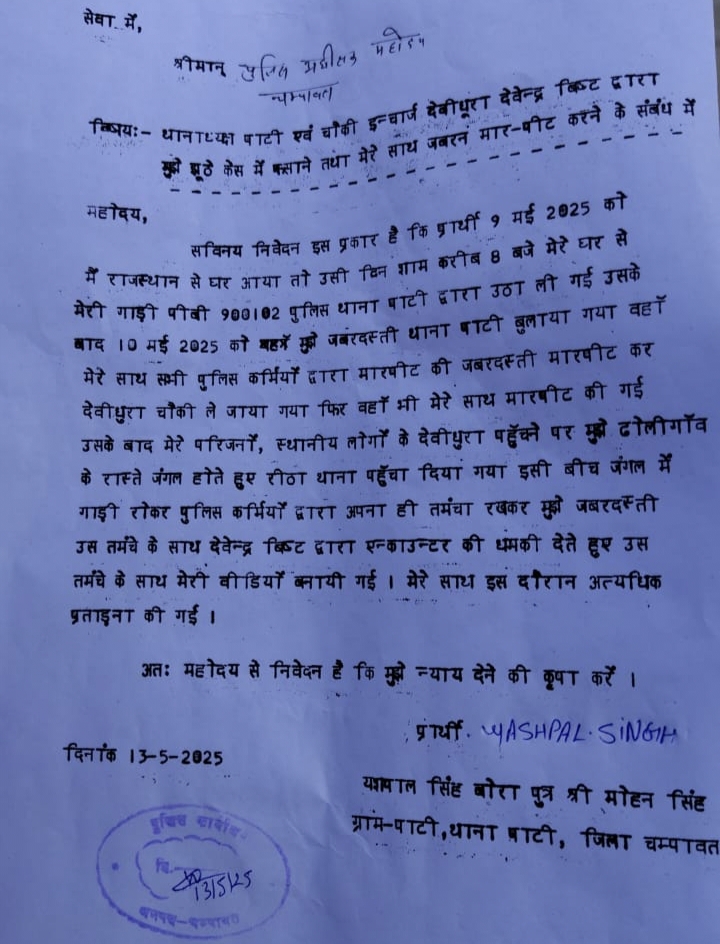 सेवा में,
श्रीमान् पुलिस अधीक्षक महोदय
चम्पावत
बिषयः- थानाध्यक्ष पाटी एवं चौकी इन्चार्ज देवीधूरा देवेन्द्र बिष्ट द्वारा
मुझे झूठे केस में फसाने तथा मेरे साथ जबरन मार-पीट करने के संबंध में
महोदय,
सविनय निवेदन इस प्रकार है कि प्रार्थी 9 मई 2025 को
मैं राजस्थान से घर आया तो उसी दिन शाम करीब 8 बजे मेरे घर से
मेरी गाड़ी पीबी 900102 पुलिस थाना पाटी द्वारा उठा ली गई उसके
बाद 10 मई 2025 को मुझे जबरदस्ती थाना पाटी बुलाया गया वहाँ
मेरे साथ सभी पुलिस कर्मियों द्वारा मारपीट की जबरदस्ती मारपीट कर
देवीधुरा चौकी ले जाया गया फिर वहाँ भी मेरे साथ मारपीट की गई
उसके बाद मेरे परिजनों, स्थानीय लोगों के देवीधुरा पहुँचने पर मुझे ढोलीगाँव
के रास्ते जंगल होते हुए रीठा थाना पहुँचा दिया गया इसी बीच जंगल में
गाड़ी रोकर पुलिस कर्मियों द्वारा अपना ही तमंचा रखकर मुझे जबरदस्ती
उस तमंचे के साथ देवेन्द्र बिष्ट द्वारा एन्काउन्टर की धमकी देते हुए उस
तमंचे के साथ मेरी वीडियों बनायी गई । मेरे साथ इस दौरान अत्यधिक
प्रताड़ना की गई ।
अतः महोदय से निवेदन है कि मुझे न्याय देने की कृपा करें ।
प्रार्थी. YASHPAL. SINGH
दिनाँक 13-5-2025
यशपाल सिंह बोरा पुत्र श्री मोहन सिंह
ग्राम-पाटी, थाना पाटी, जिला चम्पावत
पुलिस कार्यालय
वि.
13/5/25
जनपद-चम्पावत